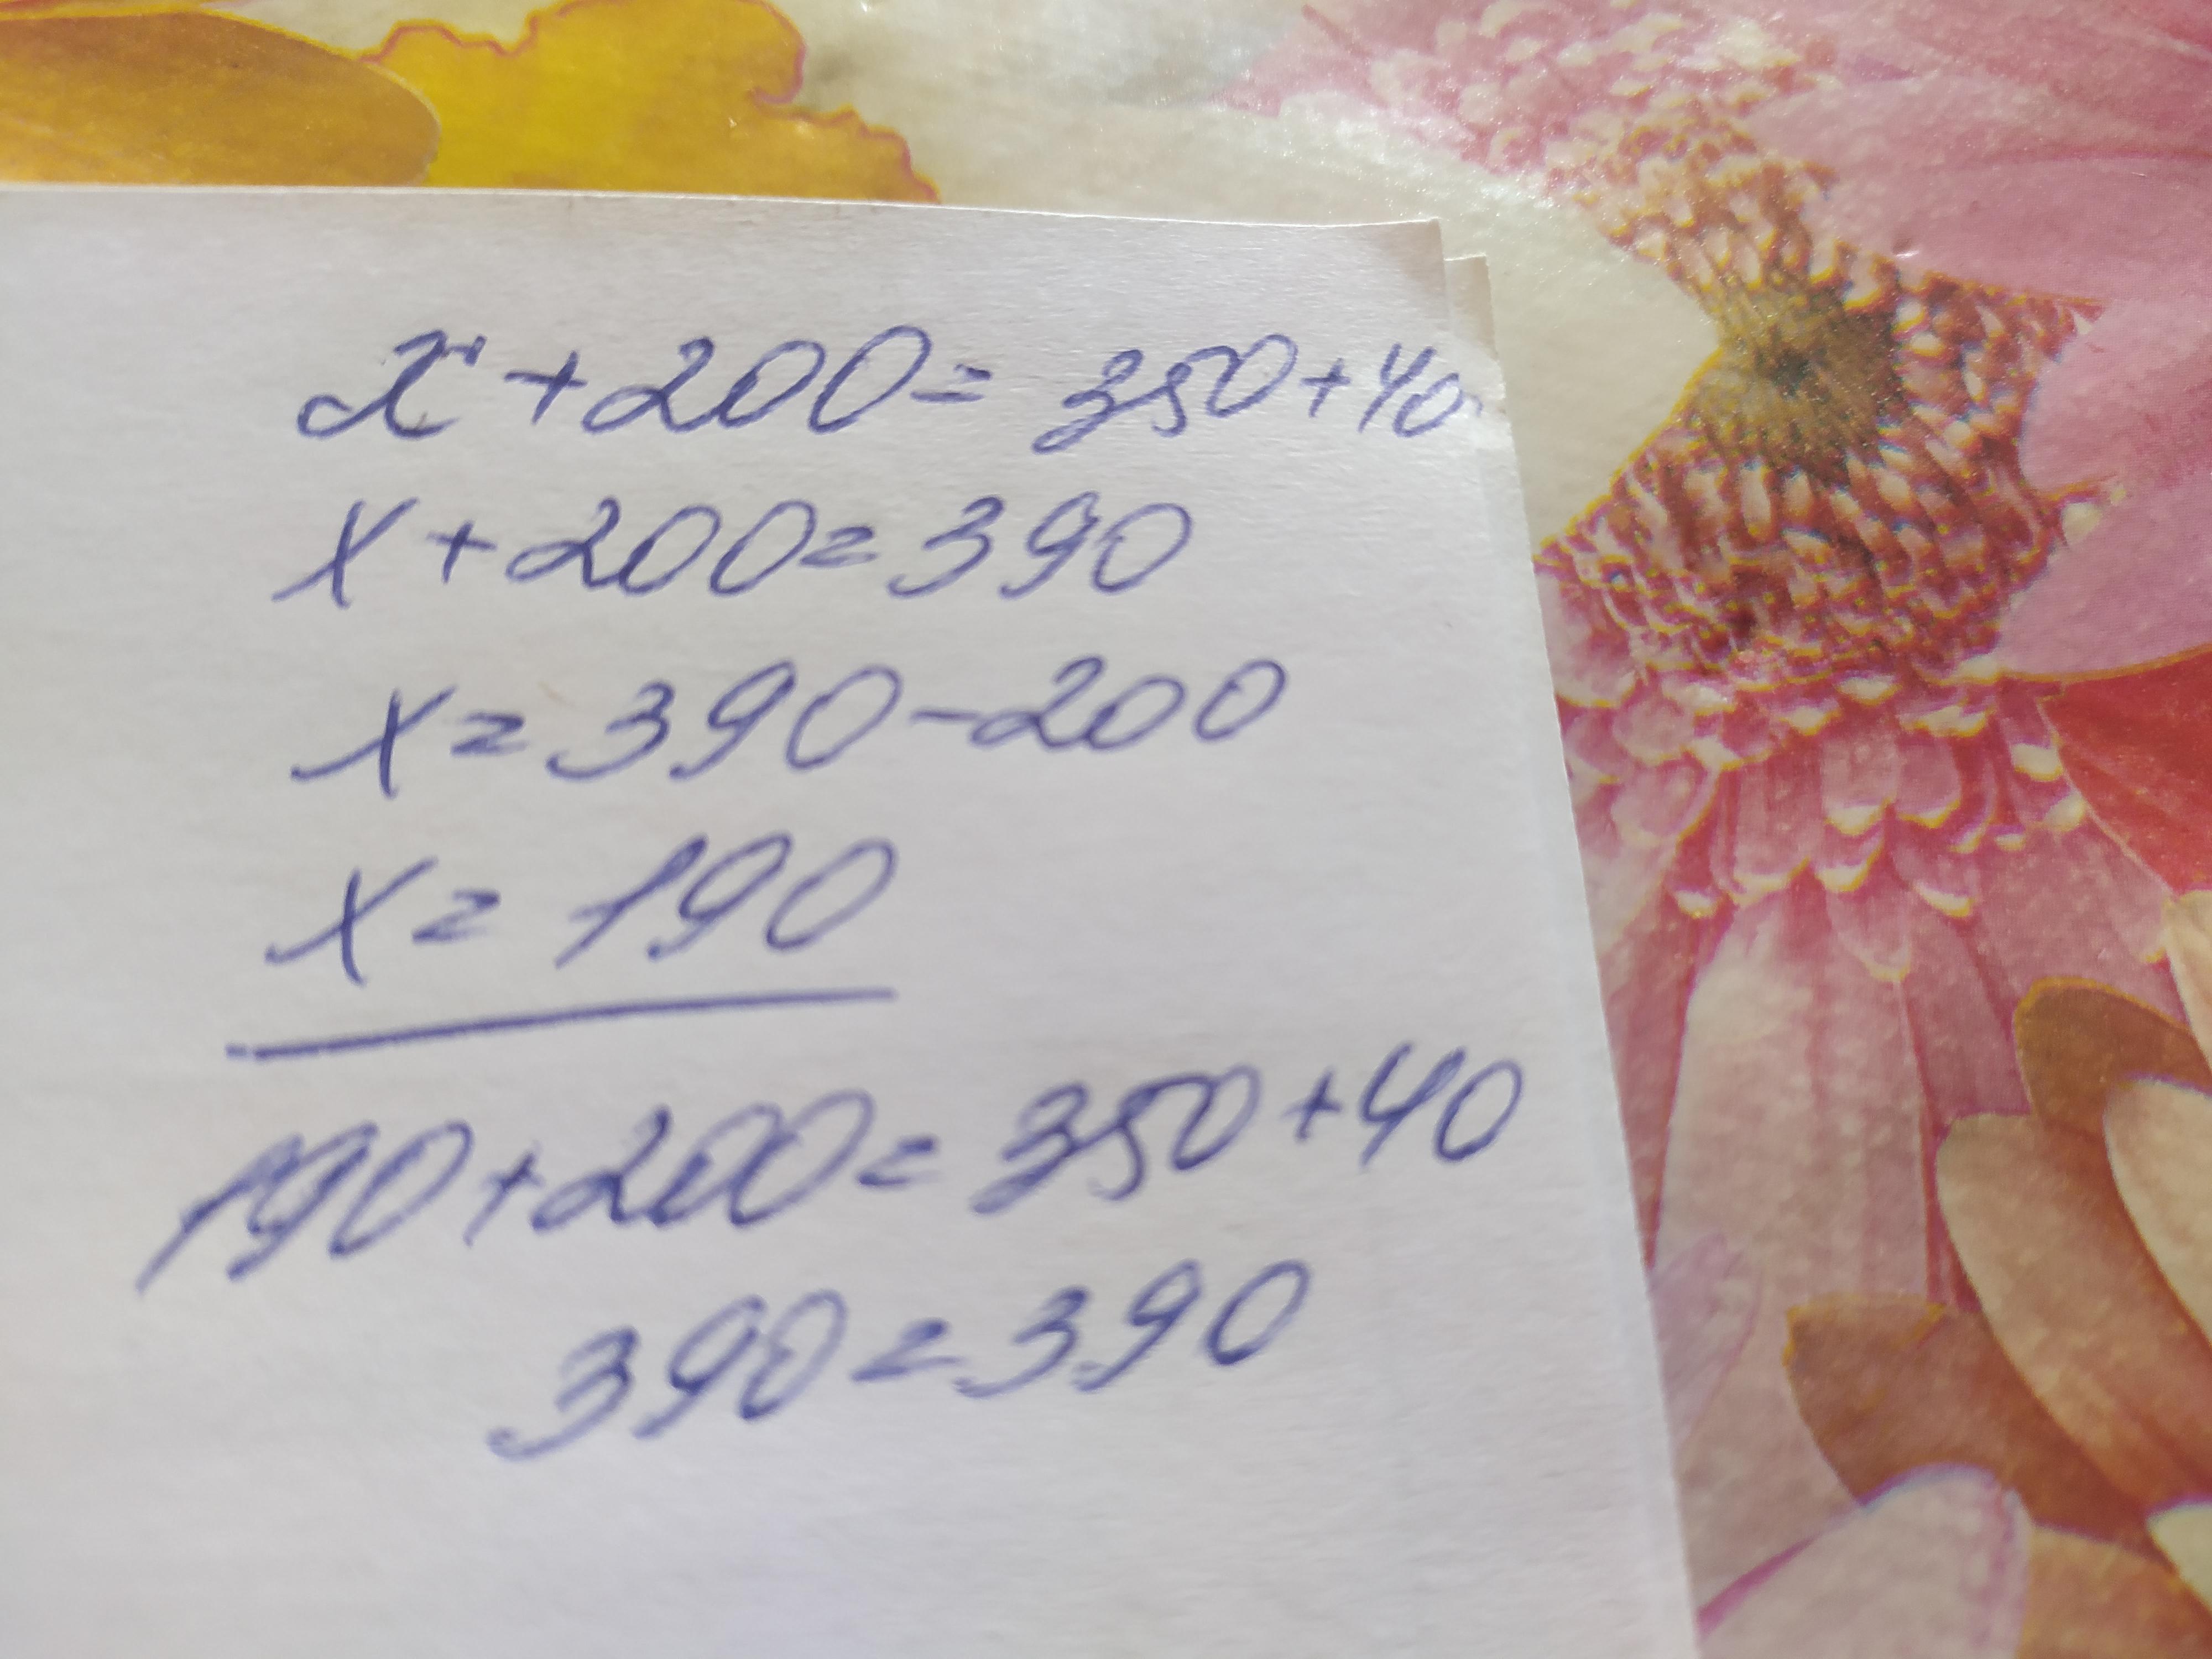 x + 200 = 350 + 40
x + 200 = 390
x = 390 - 200
x = 190
190 + 200 = 350 + 40
390 = 390